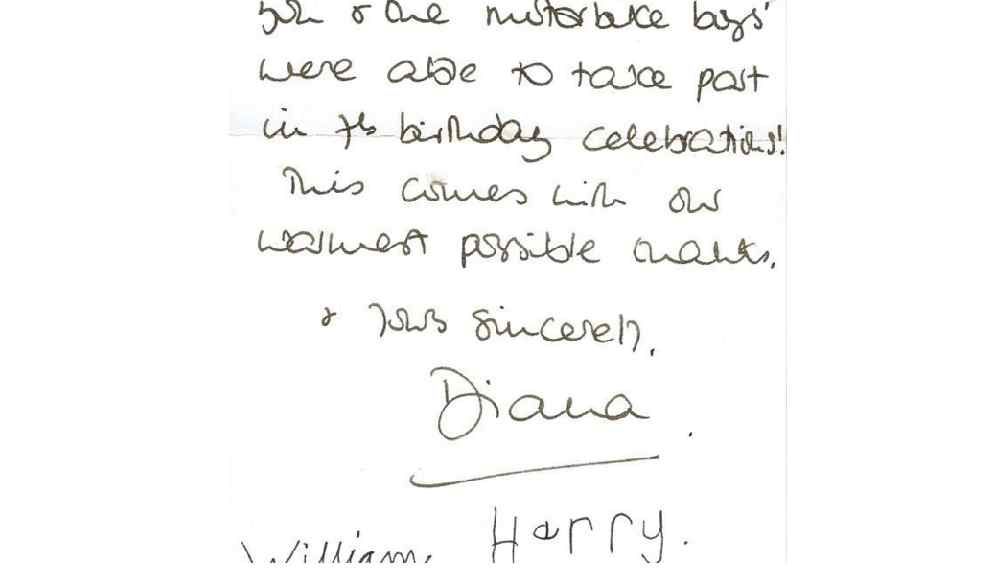 you & the motorbike boys'
were able to take part
in birthday celebrations!
This comes with our
warmest possible thanks,
& Yours sincerely,
Diana.
William. Harry.